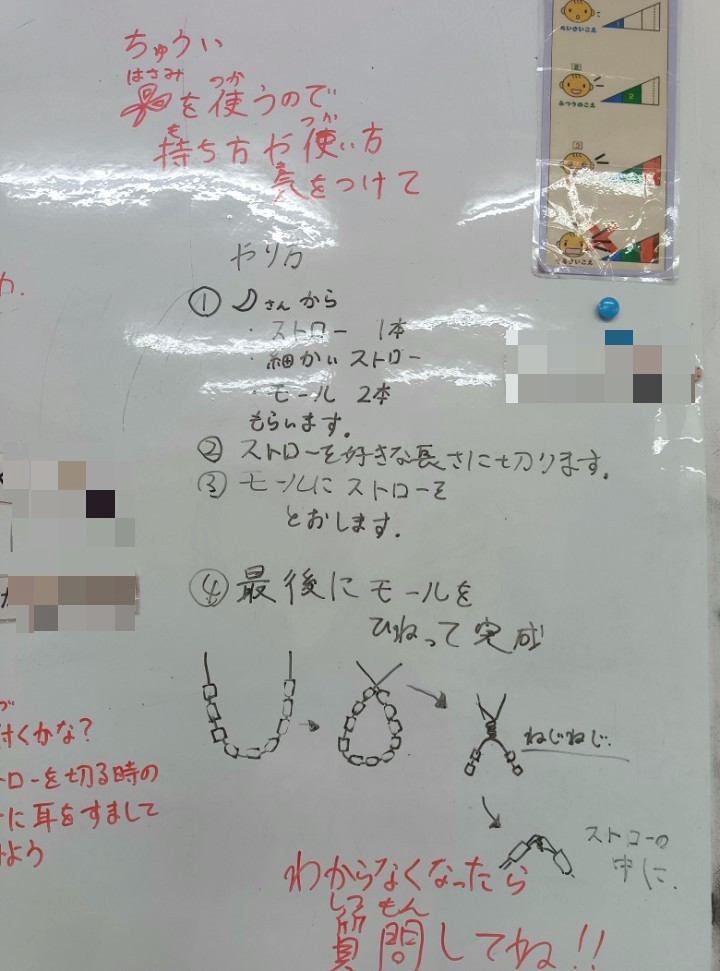 ちゅうい
はさみ つか
を使うので
も つか
持ち方や使い方
気をつけて
やり方
① さんから
・ストロー 1本
・細かいストロー
・モール 2本
もらいます。
② ストローを好きな長さに切ります。
③ モールにストローを
とおします。
④ 最後にモールを
ひねって完成
ねじねじ。
ストローの
中に。
付くかな?
トローを切る時の
に耳をすまして
よう
わからなくなったら
しつもん
質問してね!!
2
ふつうのこえ
3